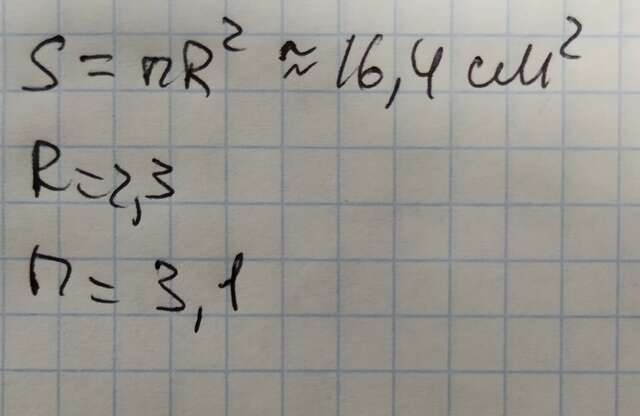 S = пR² ≈ 16,4 см²
R = 2,3
п = 3,1